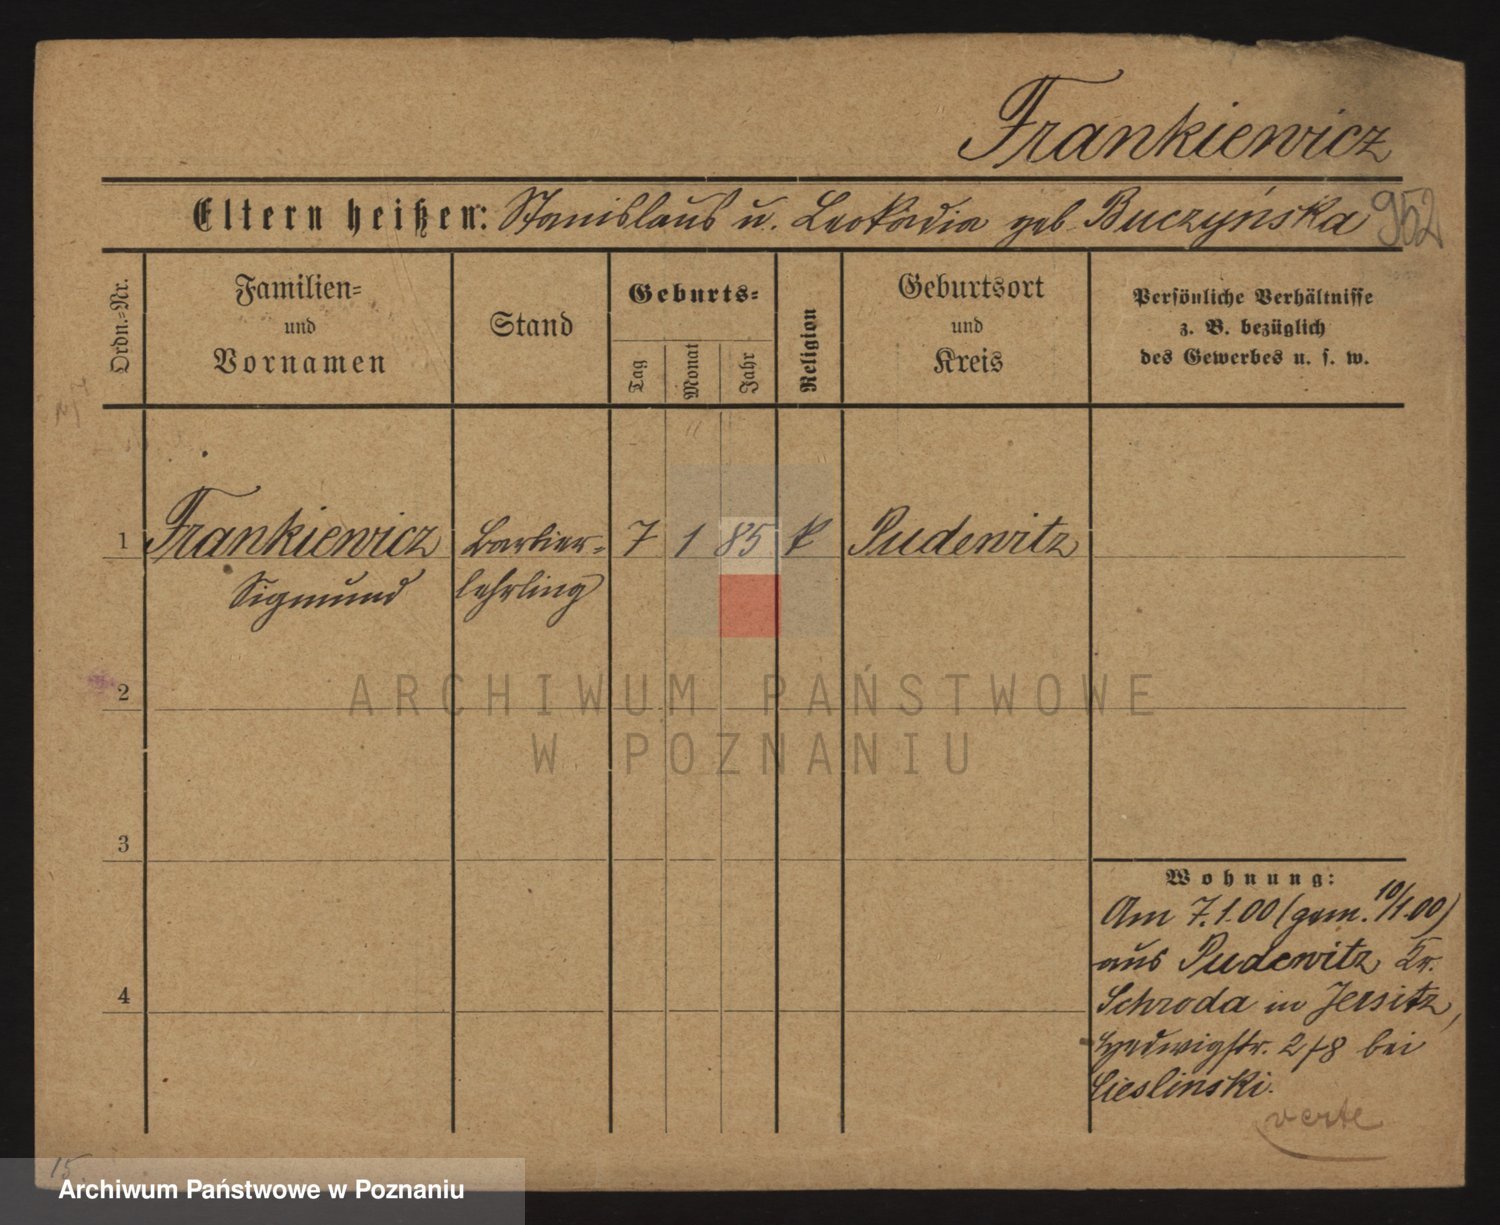 Frankiewicz
Eltern heißen: Stanislaus u. Leokadia geb. Buczyńska 952
Ordn.-Nr.
Familien-
und
Vornamen
Stand
Geburts-
Tag
Monat
Jahr
Religion
Geburtsort
und
Kreis
Persönliche Verhältnisse
z. B. bezüglich
des Gewerbes u. s. w.
1 Frankiewicz Barbier- 7 1 85 k Pudewitz
Sigmund lehrling
2
ARCHIWUM PAŃSTWOWE
W POZNANIU
3
Wohnung:
Am 7.1.00 (gem. 10/1.00)
aus Pudewitz, Kr.
4
Schroda in Jersitz,
Hedwigstr. bei
Cieslinski.
verte
15
Archiwum Państwowe w Poznaniu